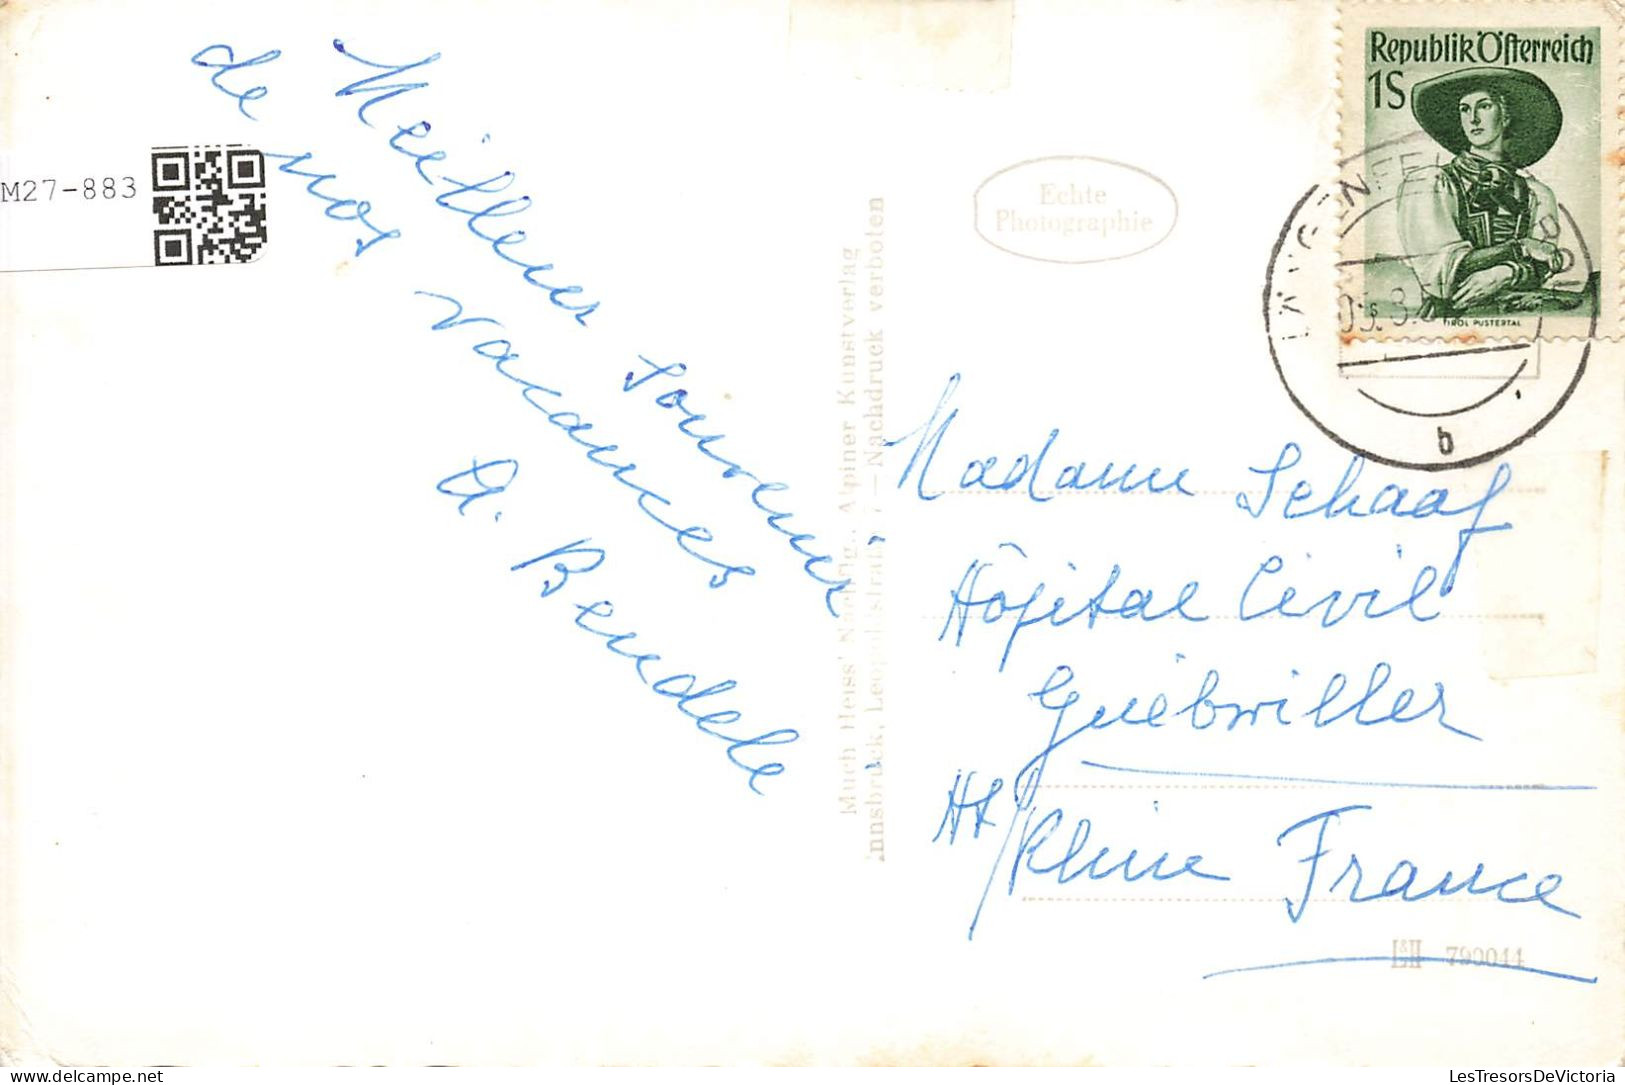 Meilleur souvenir
de nos vacances
A. Bendele
M27-883
Much Heiss' Nachflg., Alpiner Kunstverlag
Innsbruck, Leopoldstraße 7 — Nachdruck verboten
Echte
Photographie
Republik Österreich
1S
TIROL PUSTERTAL
LÄNGENFELD
b
Madame Schaaf
Hôpital Civil
Guèbwiller
Ht/Rhin France
L&H 790044
LesTresorsDeVictoria